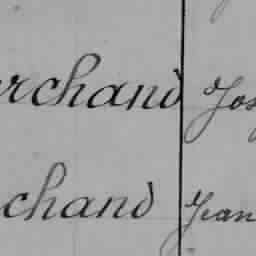 rchand Jos
chand Jean